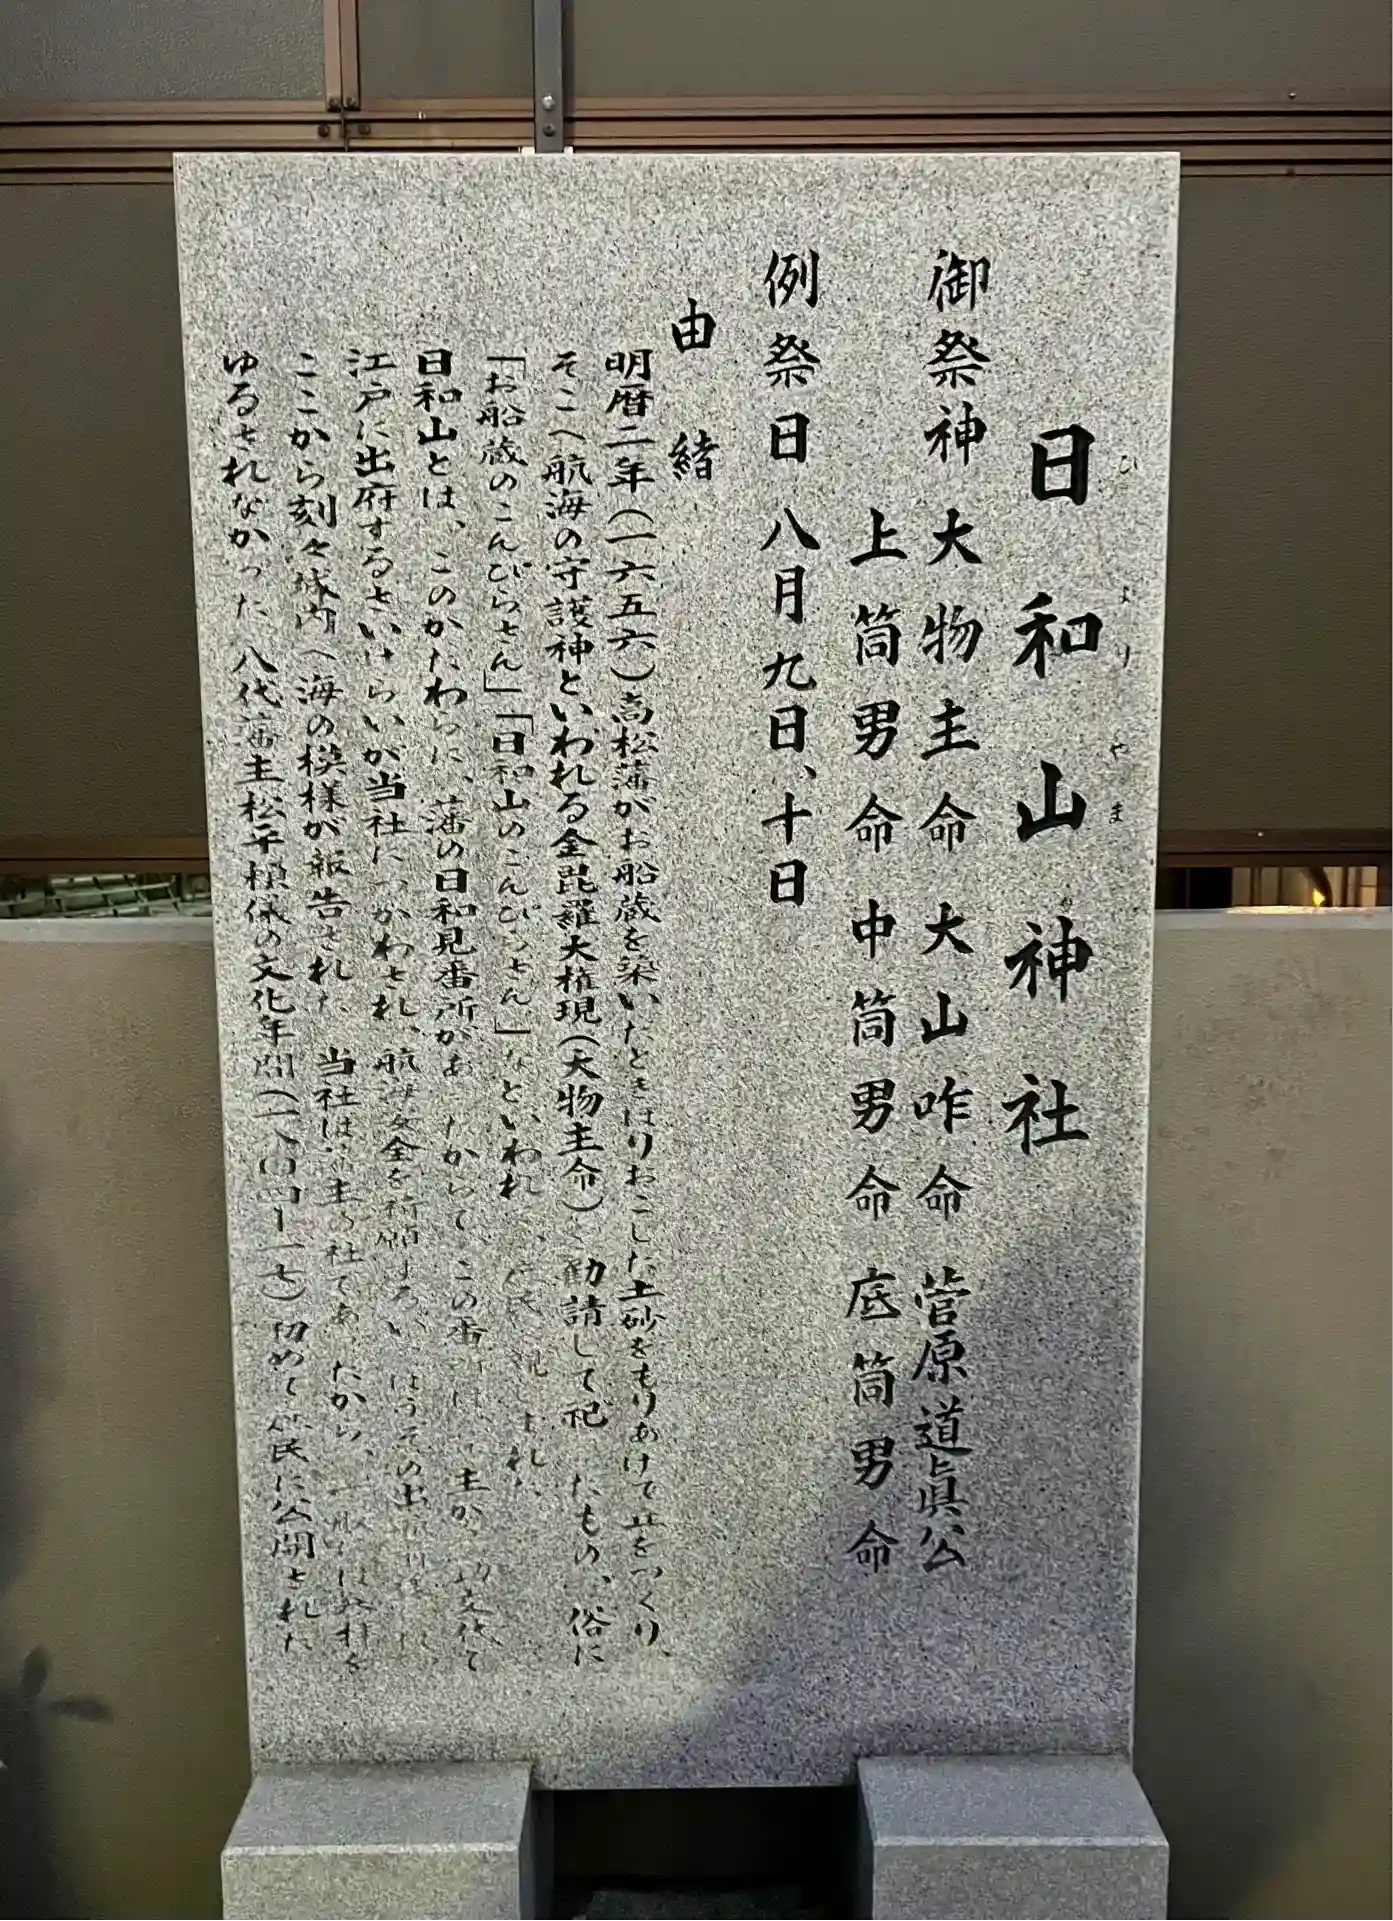 日和山神社
ひよりやま
御祭神 大物主命 大山咋命 菅原道眞公
上筒男命 中筒男命 底筒男命
例祭日 八月九日、十日
由緒
明暦二年(一六五六)高松藩がお船蔵を築いたときほりおこした土砂をもりあげて丘をつくり、
そこへ航海の守護神といわれる金毘羅大権現(大物主命)を勧請して祀ったもの、俗に
「お船蔵のこんぴらさん」「日和山のこんぴらさん」などといわれ
日和山とは、このかたわらに、藩の日和見番所があったからで、この番所は
江戸に出府するさいけらいが当社につかわされ、航海安全を祈願する
ここから刻々城内へ海の模様が報告された 当社は 社であったから、
ゆるされなかった 八代藩主松平頼儀の文化年間(一八〇四ー一七)初めて庶民に公開された